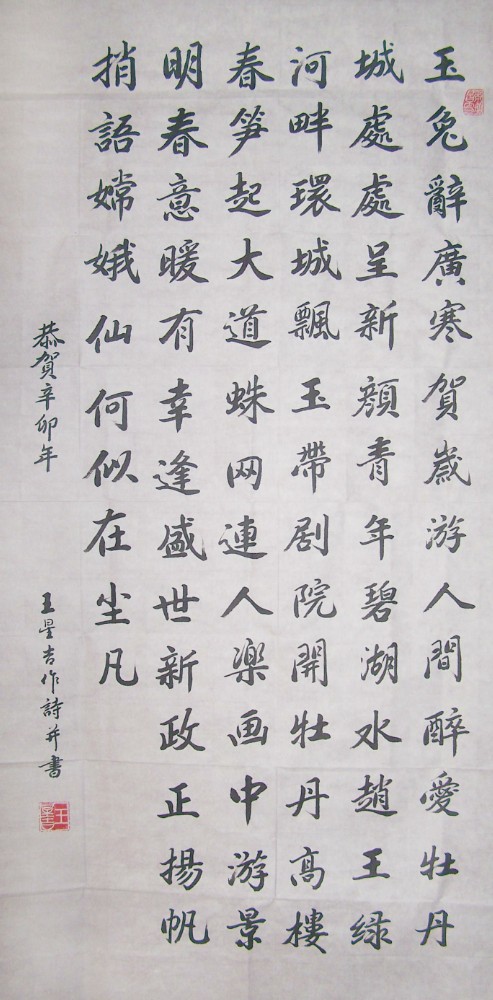 玉兔辭廣寒賀歲游人間醉愛牡丹
城處處呈新顔青年碧湖水趙王绿
河畔環城飄玉帶剧院開牡丹高樓
春笋起大道蛛网連人楽画中游景
明春意暖有幸逢盛世新政正揚帆
捎語嫦娥仙何似在尘凡
恭賀辛卯年
王星吉作詩并書